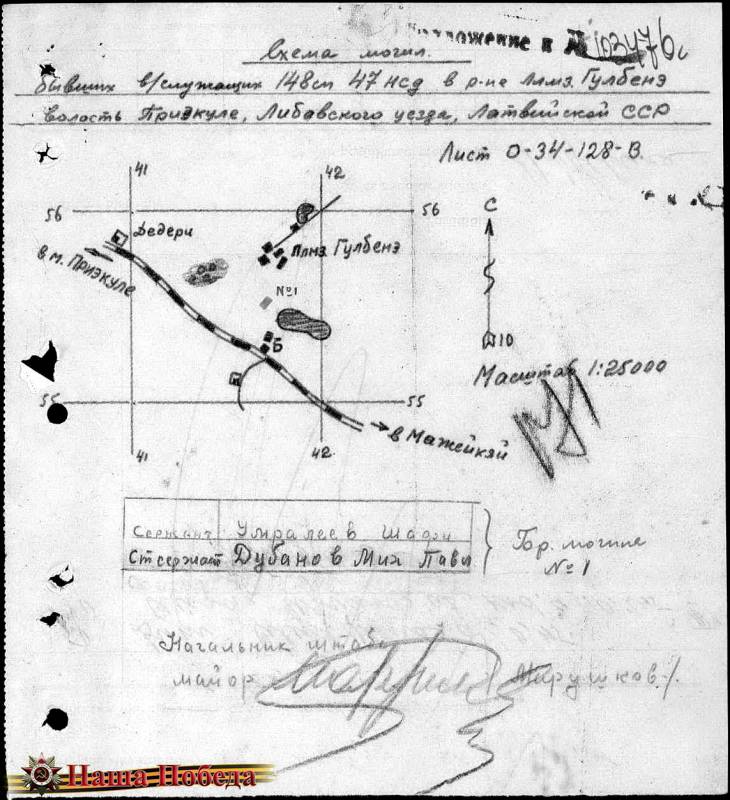 Приложение к № 103476с
Схема могил.
бывших в/служащих 148сп 47нсд в р-не Плмз. Гулбенэ
волость Приэкуле, Либавского уезда, Латвийской ССР
Лист О-34-128-В.
41
42
56
56
С
Дедери
в м. ПРИЭКУЛЕ
Плмз. Гулбенэ
№1
Б
Ю
Масштаб 1:25000
55
55
в Мажейкяй
41
42
Сержант Умралеев Шадри
Ст сержант Дубанов Мих Павл
Бр. могиле
№1
Начальник штаба
майор Марушков
Наша Победа